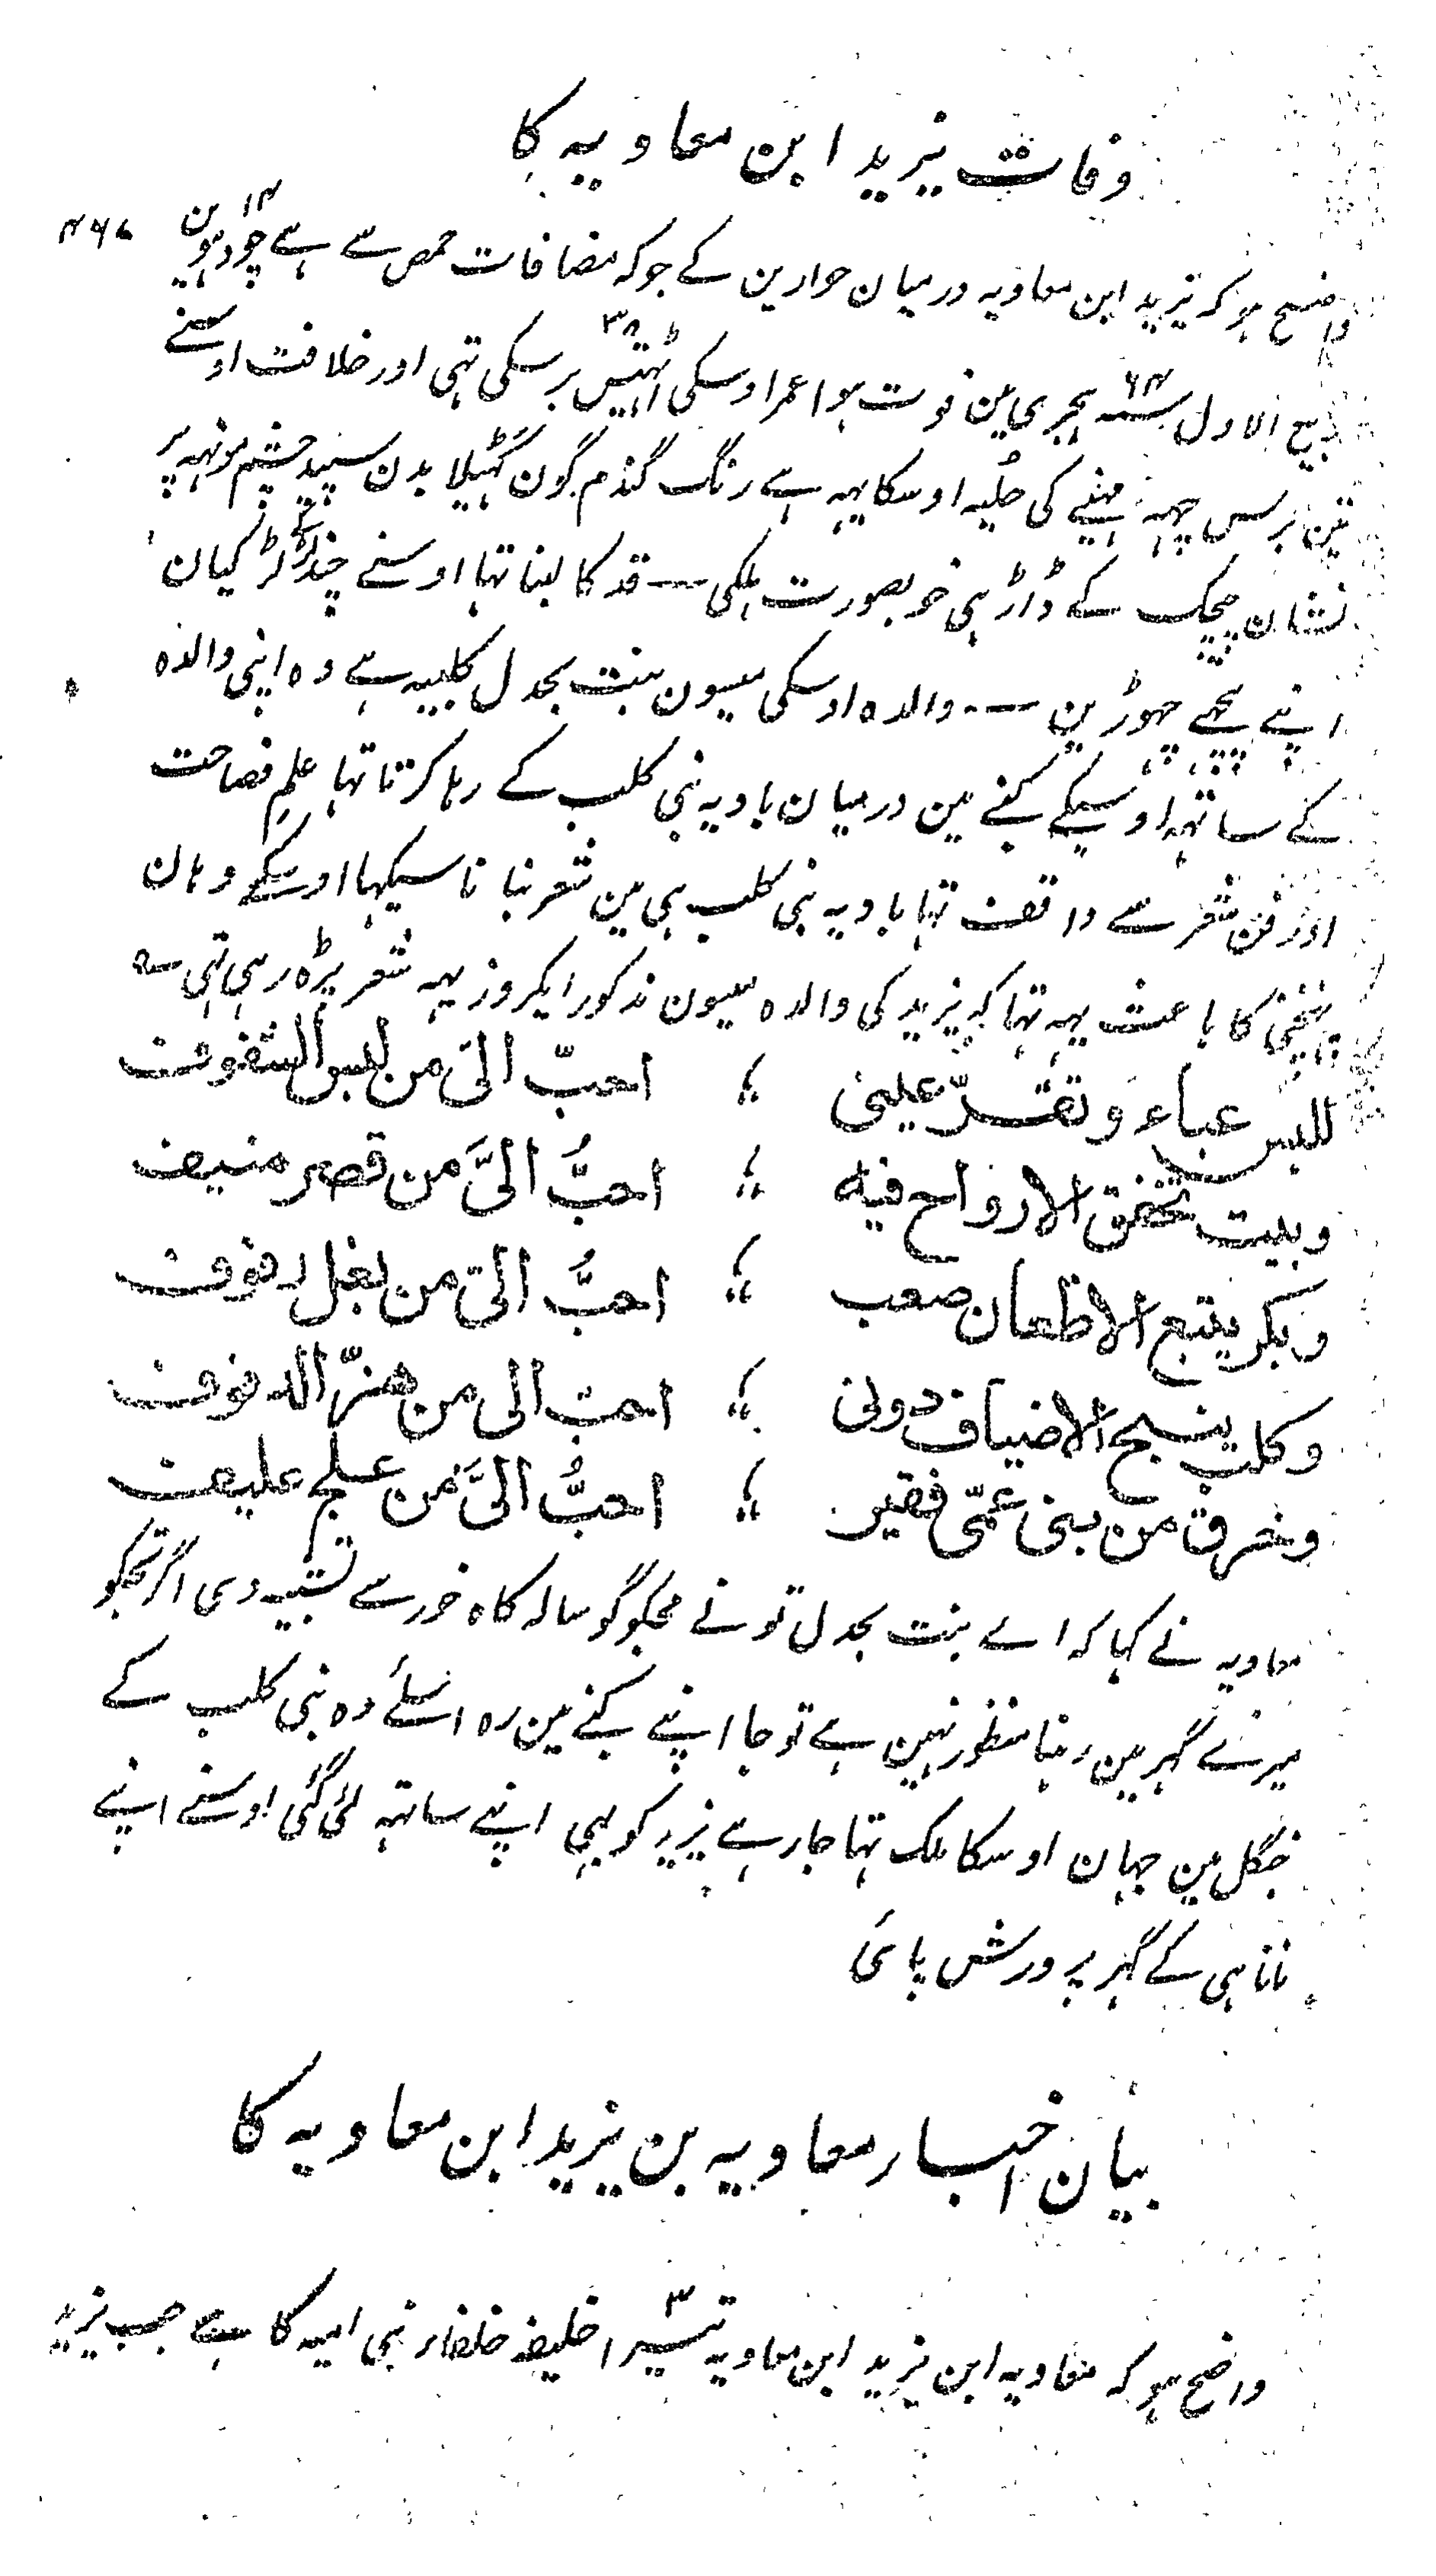 وفات یزید ابن معاویہ کا
واضح ہو کہ یزید ابن معاویہ درمیان حوارین کے جو کہ مضافات حمص سے ہے چودہوین ۱۴
ربیع الاول سنہ ۶۴ ہجری مین فوت ہوا عمر اوسکی اٹہتیس ۳۸ برسکی تہی اور خلافت اوسنے
تین برس چہہ مہینے کی حلیہ اوسکا یہہ ہے رنگ گندم گون گٹہیلا بدن سپید چشم مونہہ پر
نشان چیچک کے ڈاڑہی خوبصورت ہلکی ـــ قد کا لنبا تہا اوسنے چند لڑکے لڑکیان
اپنے پیچہے چہوڑین ـــ والدہ اوسکی میسون بنت بحدل کلبیہ ہے وہ اپنی والدہ
کے ساتہہ اوسیکے کنبے مین درمیان بادیہ بنی کلب کے رہا کرتا تہا علم فصاحت
اور فن شعر سے واقف تہا بادیہ بنی کلب ہی مین شعر بنانا سیکہا اوسکے وہان
پہنچنے کا باعث یہہ تہا کہ یزید کی والدہ میسون مذکور ایکروز یہہ شعر پڑہ رہی تہی ؎
للبس عباء و تقرّ عینی ؛ احبّ الیَّ من لبس الشفوف
وبیت تخفق الارواح فیہ ؛ احبُّ الیَّ من قصر منیف
وبکر یتبع الاظعان صعب ؛ احبُّ الیّ من بغل زفوف
وکلب ینبح الاضیاف دونی ؛ احبّ الی من هزّ الدفوف
وخرق من بنی عمّی فقیر ؛ احبُّ الیَّ من علج علیف
معاویہ نے کہا کہ اے بنت بحدل تو نے مجکو گوسالہ کاہ خور سے تشبیہ دی اگر تجکو
میرے گہر مین رہنا منظور نہین ہے تو جا اپنے کنبے مین رہ اسلئے وہ بنی کلب کے
جنگل مین جہان اوسکا ملک تہا جا رہے یزید کو بہی اپنے ساتہہ لئی گئی اوسنے اپنے
نانا ہی کے گہر پرورش پائی
بیان اخبار معاویہ بن یزید ابن معاویہ کا
واضح ہو کہ معاویہ ابن یزید ابن معاویہ تیسرا ۳ خلیفہ خلفاء بنی امیہ کا ہے جب یزید